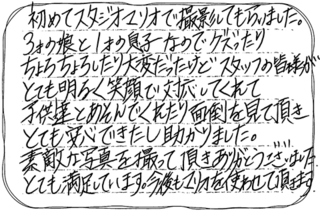 初めてスタジオマリオで撮影してもらいました。
3才の娘と1才の息子なのでグズったり
ちょろちょろしたり大変だったけどスタッフの皆様が
とても明るく笑顔で対応してくれて
子供達とあそんでくれたり面倒を見て頂き
とても安心できたし助かりました。
素敵な写真を撮って頂きありがとうございました
とても満足しています。今後もマリオを使わせて頂きます。